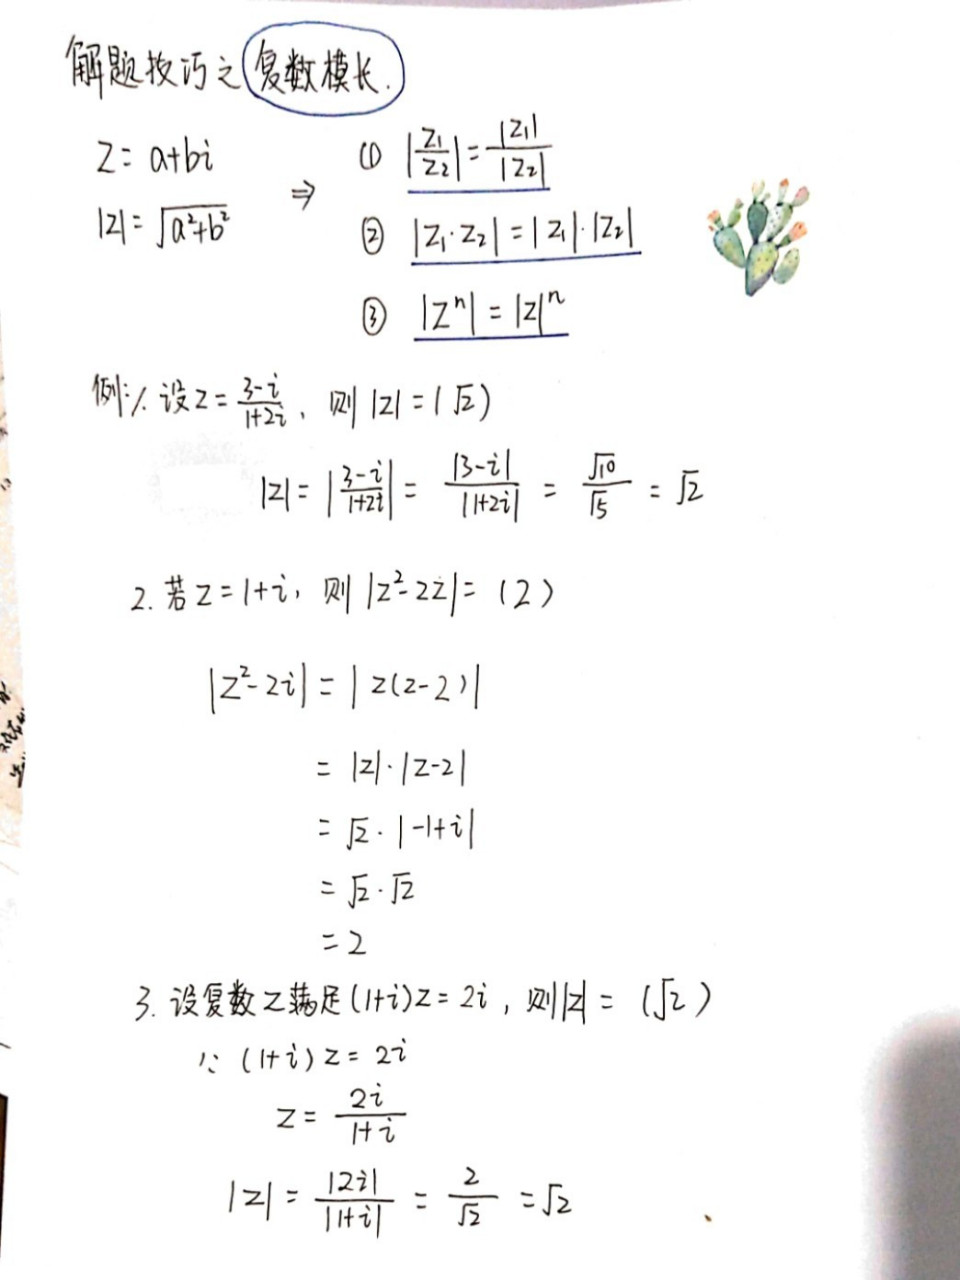 解题技巧之复数模长.
z = a+bi
|z| = √(a²+b²)
⇒
① |z₁/z₂| = |z₁|/|z₂|
② |z₁·z₂| = |z₁|·|z₂|
③ |zⁿ| = |z|ⁿ
例: 1. 设z = (3-i)/(1+2i), 则 |z| = (√2)
|z| = |(3-i)/(1+2i)| = |3-i|/|1+2i| = √10/√5 = √2
2. 若z = 1+i, 则 |z²-2z| = (2)
|z²-2i| = |z(z-2)|
= |z|·|z-2|
= √2·|-1+i|
= √2·√2
= 2
3. 设复数z满足(1+i)z = 2i, 则|z| = (√2)
∵ (1+i)z = 2i
z = 2i/(1+i)
|z| = |2i|/|1+i| = 2/√2 = √2